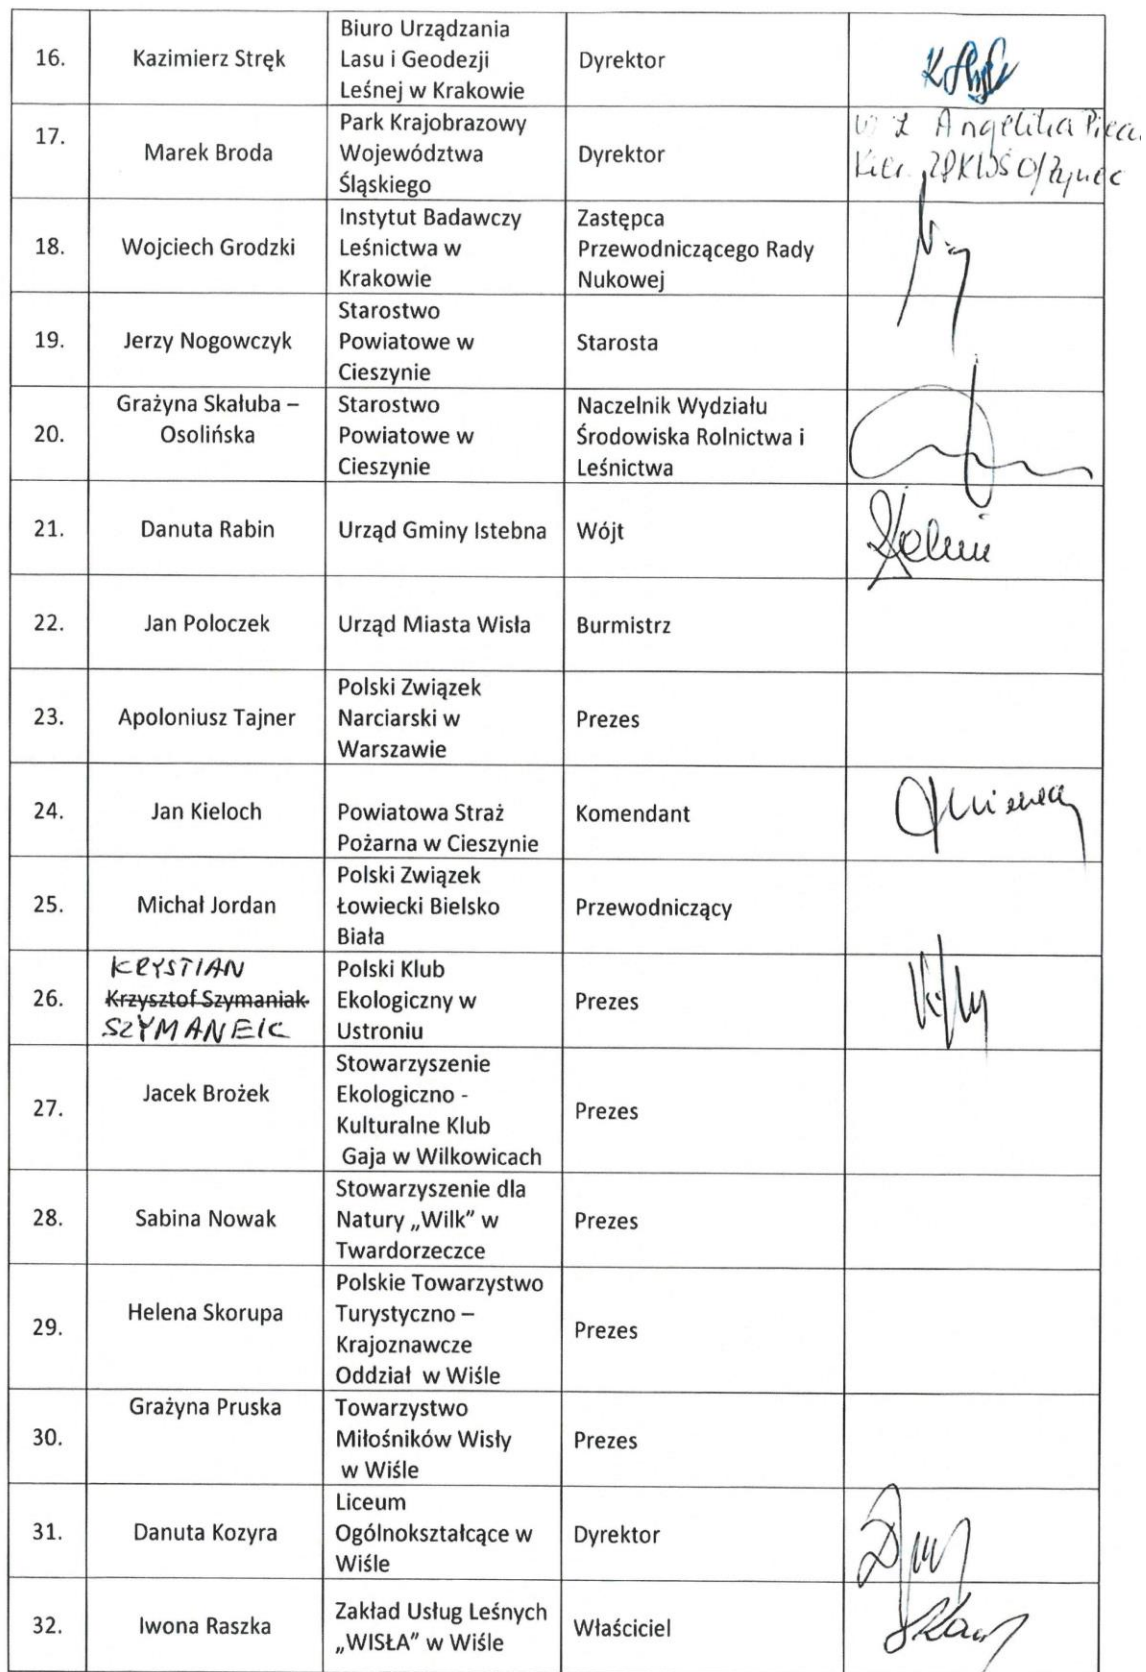 16.
Kazimierz Stręk
Biuro Urządzania
Lasu i Geodezji
Leśnej w Krakowie
Dyrektor
17.
Marek Broda
Park Krajobrazowy
Województwa
Śląskiego
Dyrektor
Angelika
18.
Wojciech Grodzki
Instytut Badawczy
Leśnictwa w
Krakowie
Zastępca
Przewodniczącego Rady
Nukowej
19.
Jerzy Nogowczyk
Starostwo
Powiatowe w
Cieszynie
Starosta
20.
Grażyna Skałuba –
Osolińska
Starostwo
Powiatowe w
Cieszynie
Naczelnik Wydziału
Środowiska Rolnictwa i
Leśnictwa
21.
Danuta Rabin
Urząd Gminy Istebna
Wójt
22.
Jan Poloczek
Urząd Miasta Wisła
Burmistrz
23.
Apoloniusz Tajner
Polski Związek
Narciarski w
Warszawie
Prezes
24.
Jan Kieloch
Powiatowa Straż
Pożarna w Cieszynie
Komendant
25.
Michał Jordan
Polski Związek
Łowiecki Bielsko
Biała
Przewodniczący
26.
KRYSTIAN
Krzysztof Szymaniak
SZYMANEK
Polski Klub
Ekologiczny w
Ustroniu
Prezes
27.
Jacek Brożek
Stowarzyszenie
Ekologiczno -
Kulturalne Klub
Gaja w Wilkowicach
Prezes
28.
Sabina Nowak
Stowarzyszenie dla
Natury „Wilk” w
Twardorzeczce
Prezes
29.
Helena Skorupa
Polskie Towarzystwo
Turystyczno –
Krajoznawcze
Oddział w Wiśle
Prezes
30.
Grażyna Pruska
Towarzystwo
Miłośników Wisły
w Wiśle
Prezes
31.
Danuta Kozyra
Liceum
Ogólnokształcące w
Wiśle
Dyrektor
32.
Iwona Raszka
Zakład Usług Leśnych
„WISŁA” w Wiśle
Właściciel